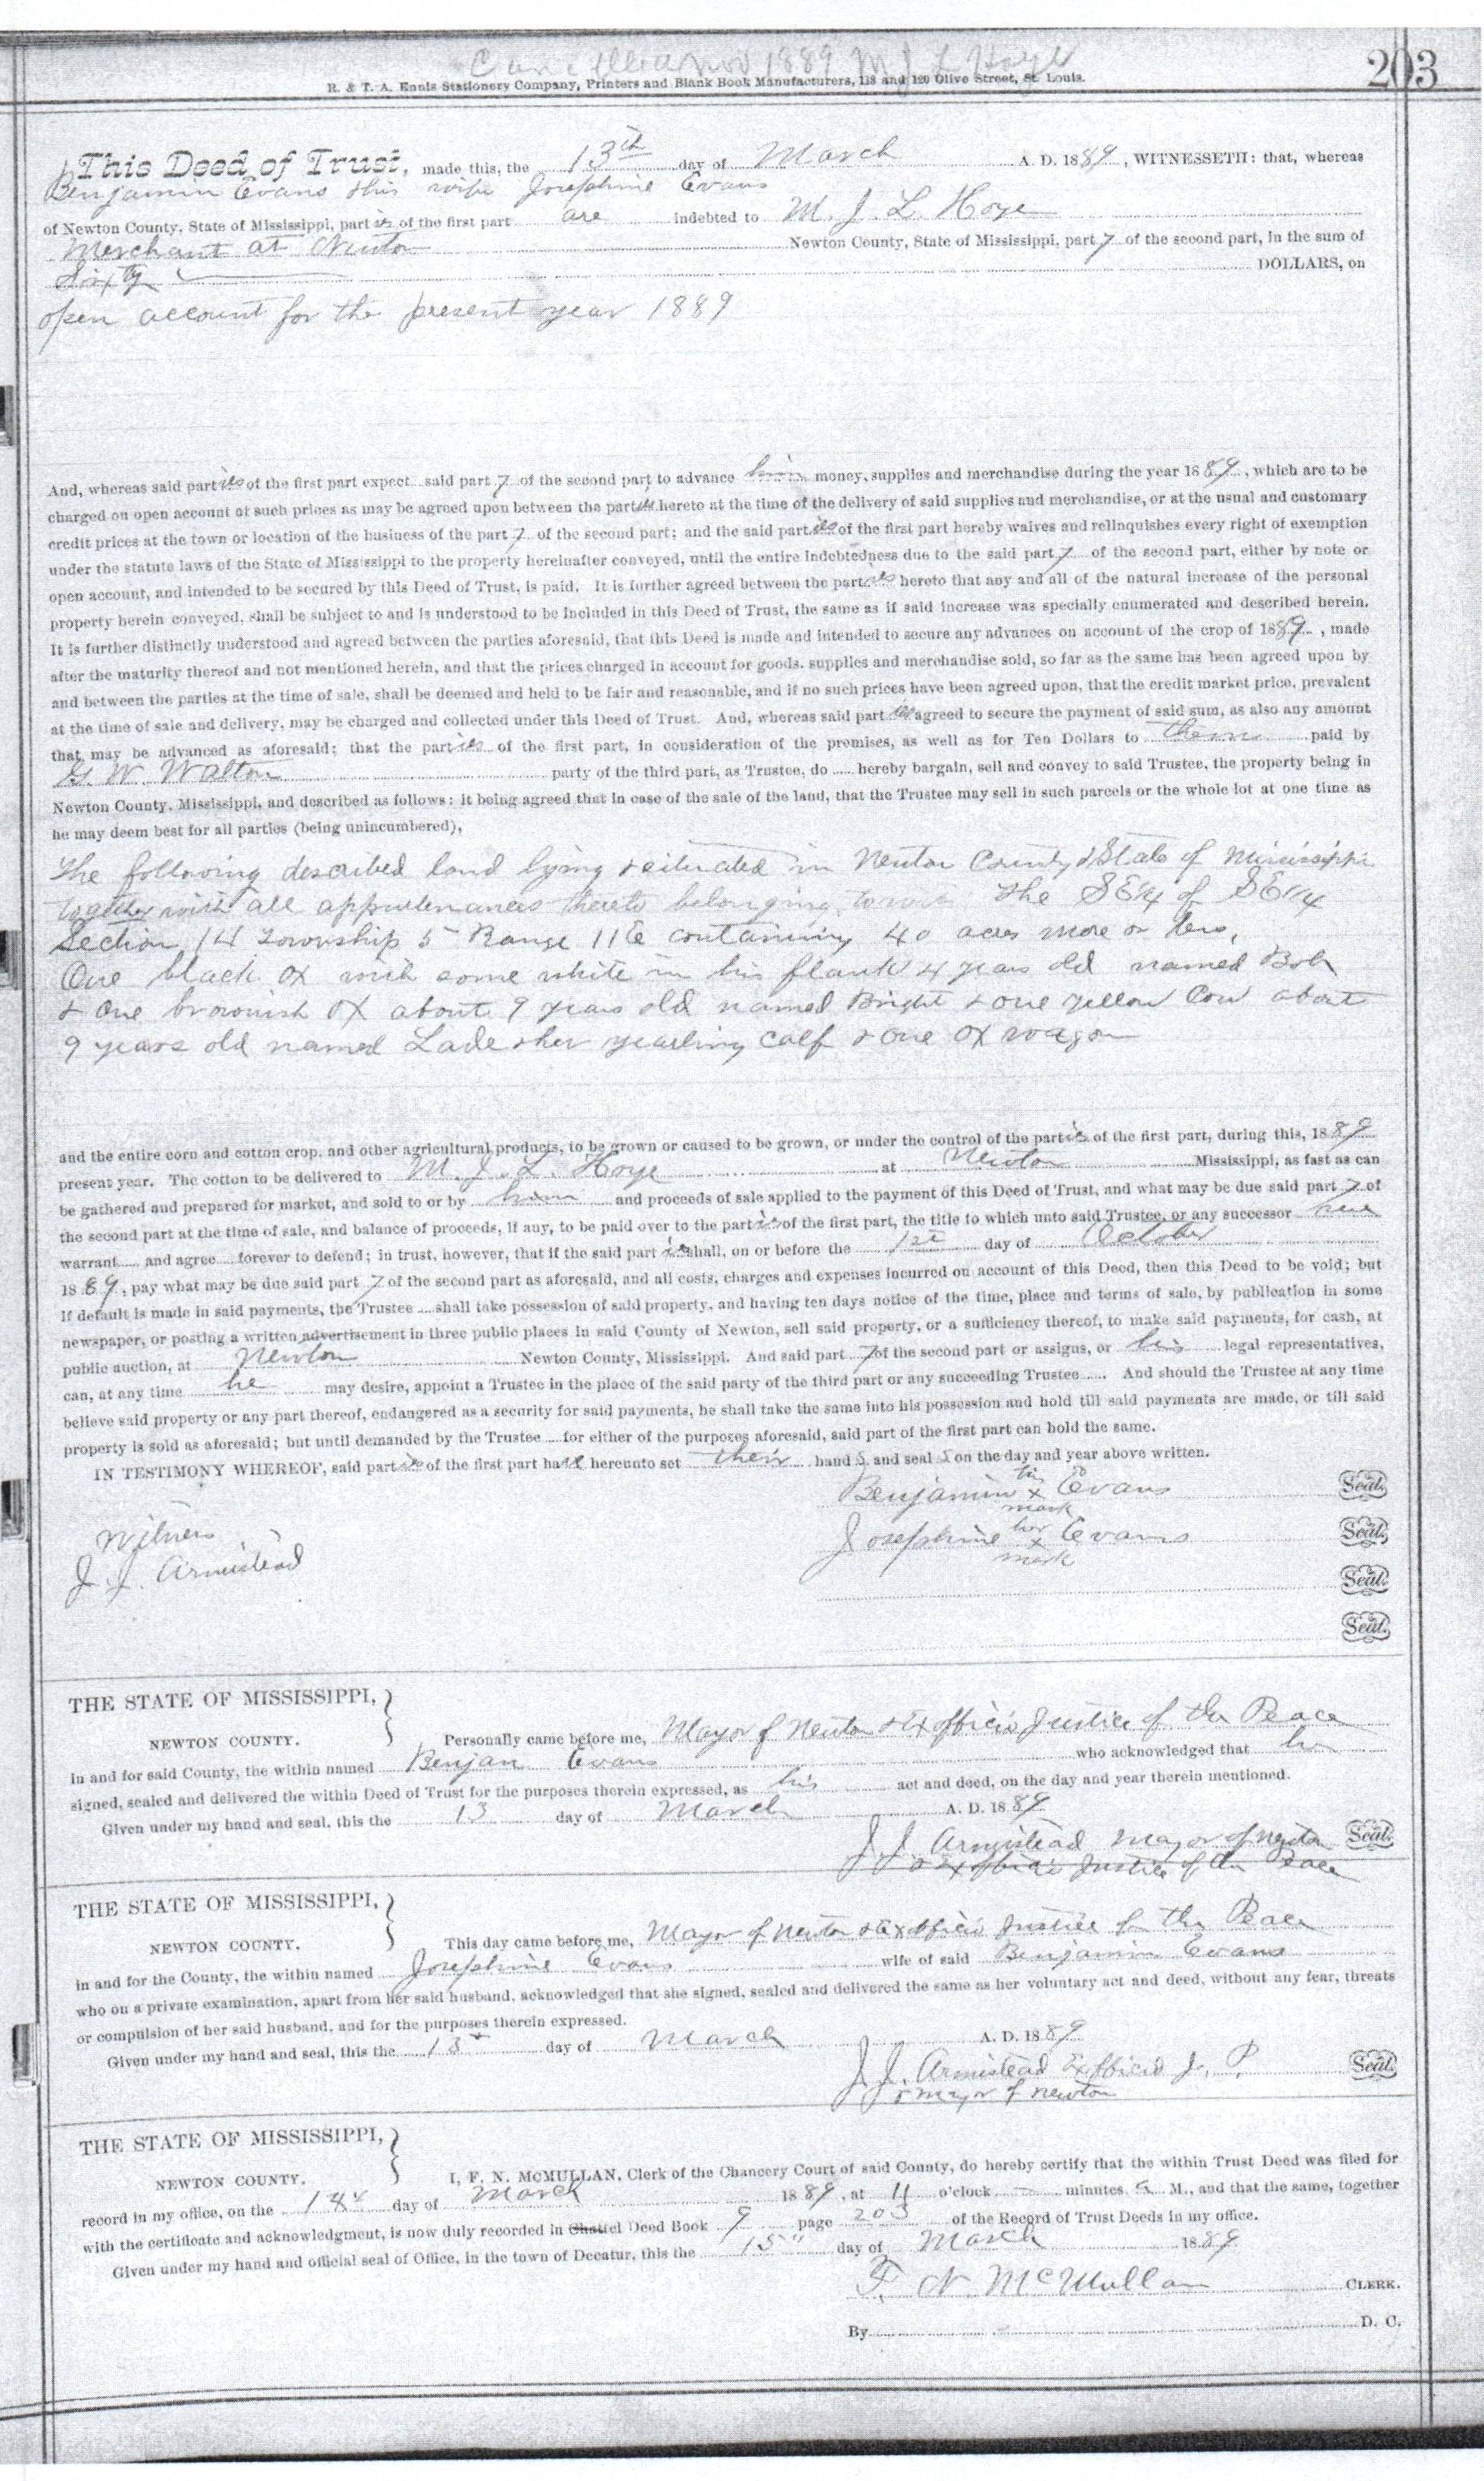 Nov 1889 M J L Hoye
203
R. & T. A. Ennis Stationery Company, Printers and Blank Book Manufacturers, 118 and 120 Olive Street, St. Louis.
This Deed of Trust, made this, the 13th day of March A. D. 1889, WITNESSETH: that, whereas
Benjamin Evans & his wife Josephine Evans
of Newton County, State of Mississippi, parties of the first part are indebted to M. J. L. Hoye
Merchant at Newton Newton County, State of Mississippi, party of the second part, in the sum of
Sixty DOLLARS, on
open account for the present year 1889
And, whereas said parties of the first part expect said party of the second part to advance him money, supplies and merchandise during the year 1889, which are to be
charged on open account at such prices as may be agreed upon between the parties hereto at the time of the delivery of said supplies and merchandise, or at the usual and customary
credit prices at the town or location of the business of the party of the second part; and the said parties of the first part hereby waives and relinquishes every right of exemption
under the statute laws of the State of Mississippi to the property hereinafter conveyed, until the entire indebtedness due to the said party of the second part, either by note or
open account, and intended to be secured by this Deed of Trust, is paid. It is further agreed between the parties hereto that any and all of the natural increase of the personal
property herein conveyed, shall be subject to and is understood to be included in this Deed of Trust, the same as if said increase was specially enumerated and described herein.
It is further distinctly understood and agreed between the parties aforesaid, that this Deed is made and intended to secure any advances on account of the crop of 1889, made
after the maturity thereof and not mentioned herein, and that the prices charged in account for goods. supplies and merchandise sold, so far as the same has been agreed upon by
and between the parties at the time of sale, shall be deemed and held to be fair and reasonable, and if no such prices have been agreed upon, that the credit market price, prevalent
at the time of sale and delivery, may be charged and collected under this Deed of Trust. And, whereas said parties agreed to secure the payment of said sum, as also any amount
that may be advanced as aforesaid; that the parties of the first part, in consideration of the premises, as well as for Ten Dollars to them paid by
G. W Walton party of the third part, as Trustee, do hereby bargain, sell and convey to said Trustee, the property being in
Newton County, Mississippi, and described as follows: it being agreed that in case of the sale of the land, that the Trustee may sell in such parcels or the whole lot at one time as
he may deem best for all parties (being unincumbered),
The following described land lying & situated in Newton County & State of Mississippi
together with all appurtenances thereto belonging, to wit: The SE1/4 of SE1/4
Section 14 Township 5 Range 11E containing 40 acres more or less,
One black ox with some white in his flank 4 years old named Bob
& one brownish ox about 9 years old named Bright & one yellow Cow about
9 years old named Lade & her yearling calf & one ox wagon
and the entire corn and cotton crop, and other agricultural products, to be grown or caused to be grown, or under the control of the parties of the first part, during this, 1889
present year. The cotton to be delivered to M. J. L. Hoye at Newton Mississippi, as fast as can
be gathered and prepared for market, and sold to or by him and proceeds of sale applied to the payment of this Deed of Trust, and what may be due said party of
the second part at the time of sale, and balance of proceeds, if any, to be paid over to the parties of the first part, the title to which unto said Trustee, or any successor
warrant and agree forever to defend; in trust, however, that if the said parties shall, on or before the 1st day of October
1889, pay what may be due said party of the second part as aforesaid, and all costs, charges and expenses incurred on account of this Deed, then this Deed to be void; but
if default is made in said payments, the Trustee shall take possession of said property, and having ten days notice of the time, place and terms of sale, by publication in some
newspaper, or posting a written advertisement in three public places in said County of Newton, sell said property, or a sufficiency thereof, to make said payments, for cash, at
public auction, at Newton Newton County, Mississippi. And said party of the second part or assigns, or his legal representatives,
can, at any time he may desire, appoint a Trustee in the place of the said party of the third part or any succeeding Trustee. And should the Trustee at any time
believe said property or any part thereof, endangered as a security for said payments, he shall take the same into his possession and hold till said payments are made, or till said
property is sold as aforesaid; but until demanded by the Trustee for either of the purposes aforesaid, said part of the first part can hold the same.
IN TESTIMONY WHEREOF, said parties of the first part have hereunto set their hands and seals on the day and year above written.
Benjamin his x mark Evans Seal.
Witness
Josephine her x mark Evans Seal.
J. J. Armistead
Seal.
Seal.
THE STATE OF MISSISSIPPI,
NEWTON COUNTY. Personally came before me, Mayor of Newton & Exofficio Justice of the Peace
in and for said County, the within named Benjan Evans who acknowledged that he
signed, sealed and delivered the within Deed of Trust for the purposes therein expressed, as his act and deed, on the day and year therein mentioned.
Given under my hand and seal, this the 13 day of March A. D. 1889
J J Armistead Mayor of Newton Seal.
& Exofficio Justice of the Peace
THE STATE OF MISSISSIPPI,
NEWTON COUNTY. This day came before me, Mayor of Newton & Exofficio Justice of the Peace
in and for the County, the within named Josephine Evans wife of said Benjamin Evans
who on a private examination, apart from her said husband, acknowledged that she signed, sealed and delivered the same as her voluntary act and deed, without any fear, threats
or compulsion of her said husband, and for the purposes therein expressed.
Given under my hand and seal, this the 13 day of March A. D. 1889
J J. Armistead Exofficio J. P. Seal.
& Mayor of Newton
THE STATE OF MISSISSIPPI,
NEWTON COUNTY. I, F. N. MCMULLAN, Clerk of the Chancery Court of said County, do hereby certify that the within Trust Deed was filed for
record in my office, on the day of March 1889, at 11 o'clock minutes M., and that the same, together
with the certificate and acknowledgment, is now duly recorded in Chattel Deed Book 9 page 203 of the Record of Trust Deeds in my office.
Given under my hand and official seal of Office, in the town of Decatur, this the 15" day of March 1889
F. N. McMullan CLERK.
By D. C.